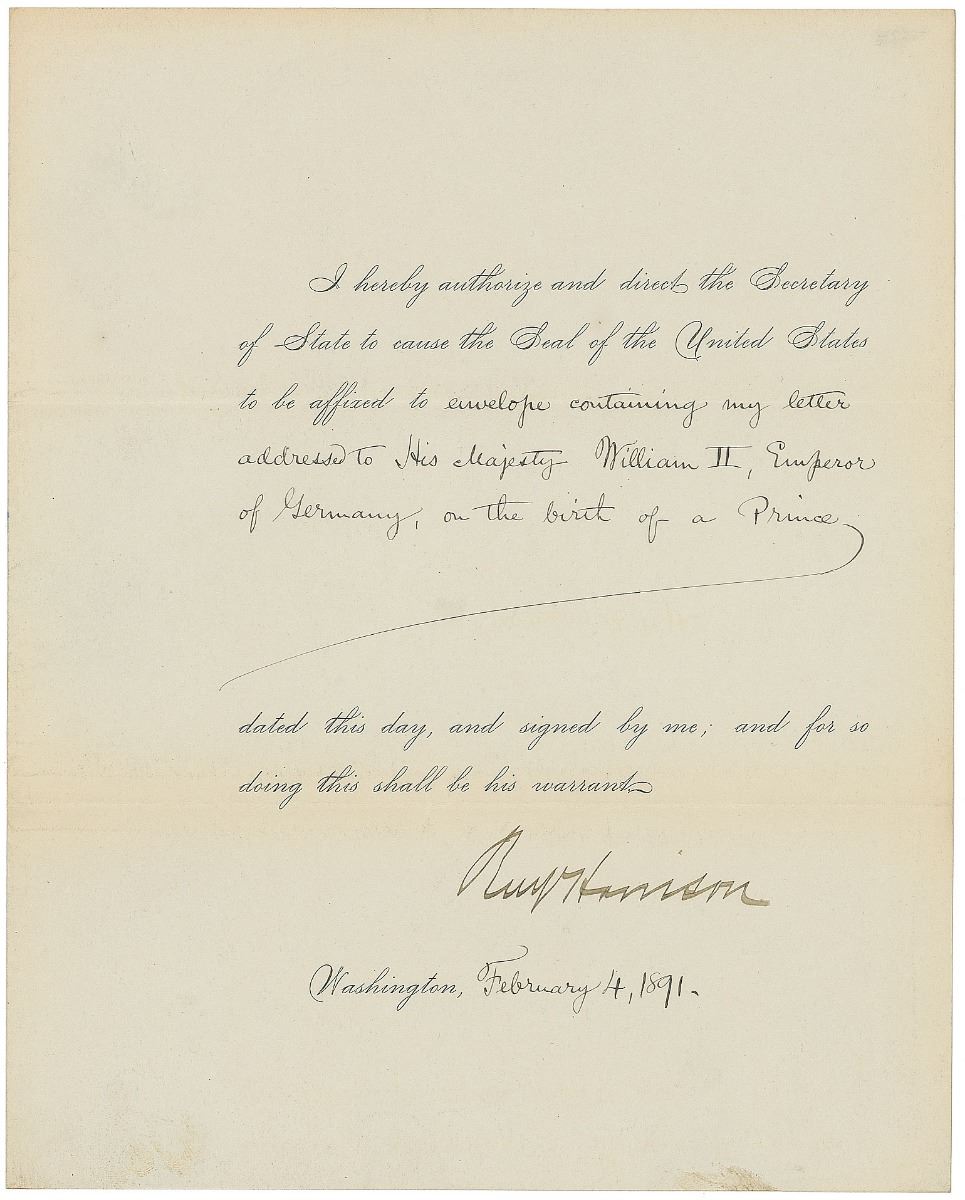 I hereby authorize and direct the Secretary
of State to cause the Seal of the United States
to be affixed to envelope containing my letter
addressed to His Majesty William II, Emperor
of Germany, on the birth of a Prince
dated this day, and signed by me; and for so
doing this shall be his warrant.
Benj Harrison
Washington, February 4, 1891.